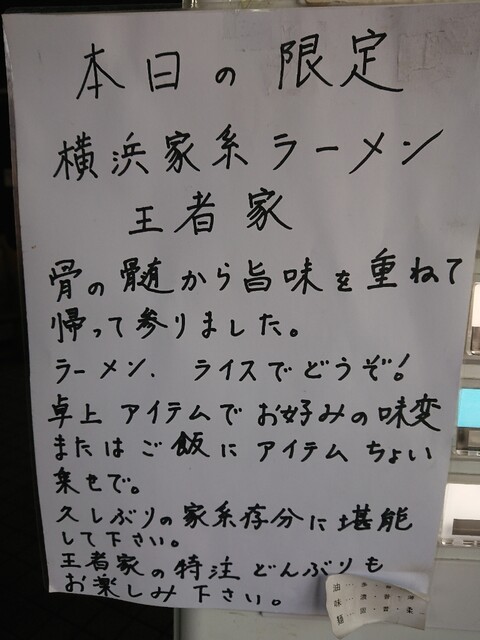 本日の限定
横浜家系ラーメン
王者家
骨の髄から旨味を重ねて
帰って参りました。
ラーメン、ライスでどうぞ!
卓上アイテムでお好みの味変
またはご飯にアイテムちょい
乗せで。
久しぶりの家系存分に堪能
して下さい。
王者家の特注どんぶりも
お楽しみ下さい。
油
味
麺